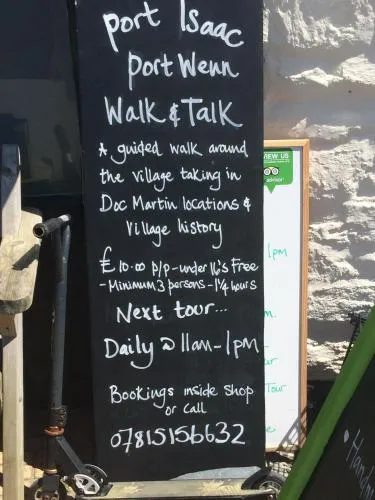 port Isaac
portWenn
Walk & Talk
A guided walk around
the village taking in
Doc Martin locations &
Village history
£10.00 p/p - under 16's Free
- Minimum 3 persons - 1¼ hours
Next tour...
Daily @ 11am - 1pm
Bookings inside shop
or call
07815156632
VIEW US
1pm
Tour